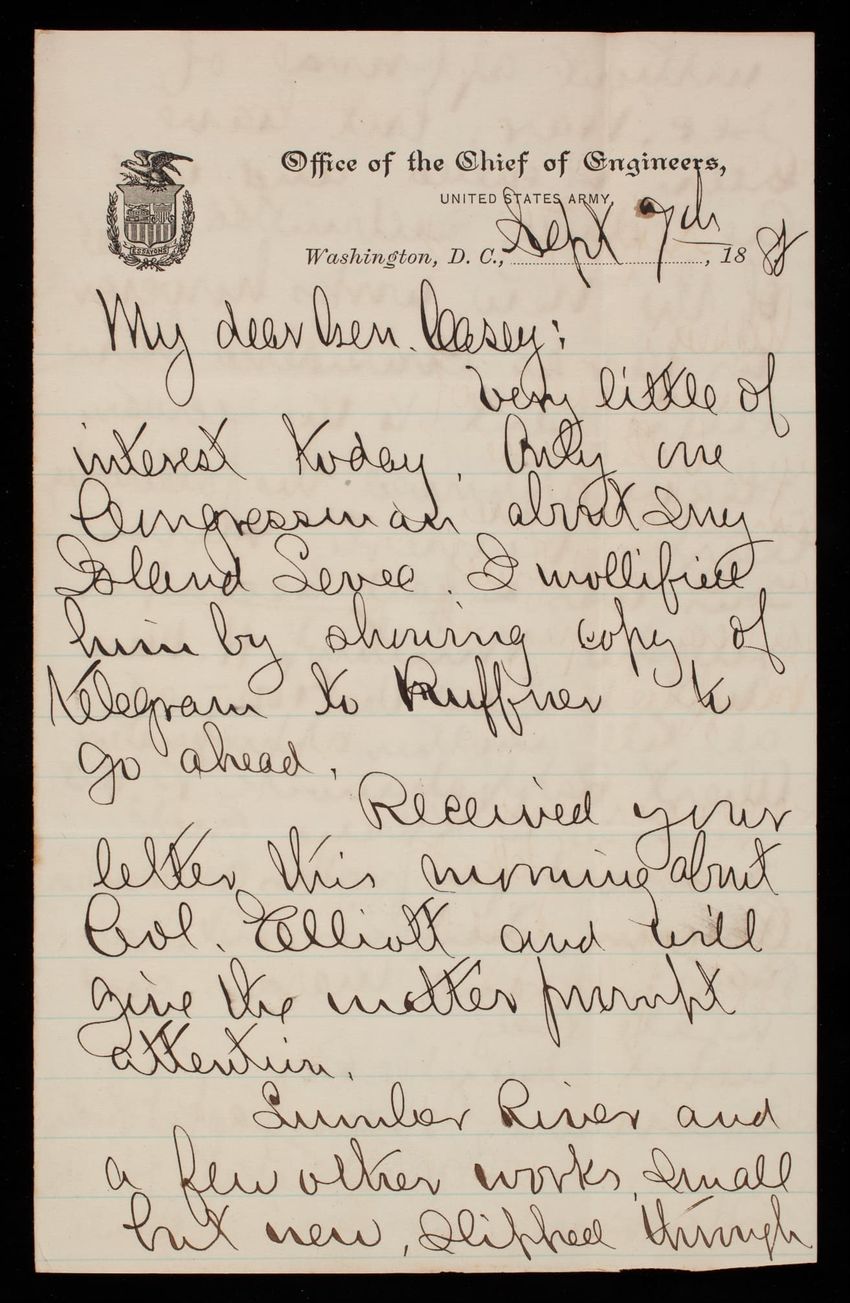 Office of the Chief of Engineers,
UNITED STATES ARMY,
Washington, D. C., Sept 7th, 1888
ESSAYONS
My dear Gen. Casey:
Very little of
interest today. Only one
Congressman about Sny
Island Levee. I mollified
him by showing copy of
telegram to Ruffner to
go ahead.
Received your
letter this morning about
Col. Elliott and will
give the matter prompt
attention.
Lumber River and
a few other works, small
but new, slipped through